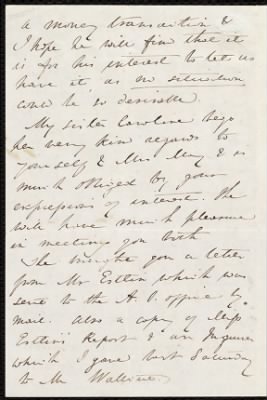 a money transaction &
I hope he will find that it
is for his interest to let us
have it, as no situation
could be so desirable.
My sister Caroline begs
her very kind regards to
yourself & Mrs May & is
much obliged by your
expressions of interest. She
will have much pleasure
in meeting you both
She you a letter
from Mr Estlin which was
sent to the A. S. office by
mail. Also a copy of Miss
Estlin's Report & an Inquirer
which I gave last Saturday
to Mr Wallcut.